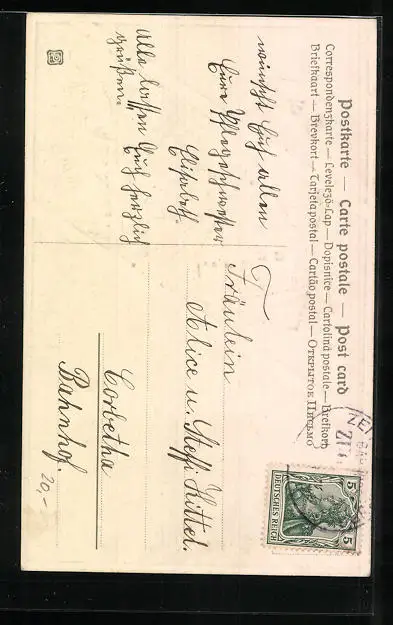 Postkarte — Carte postale — Post card
Correspondenzkarte — Levelező-Lap — Dopisnice — Cartolina postale — Brefkort
Briefkaart — Brevkort — Tarjeta postal — Cartão postal — Открытое Письмо
5 5
DEUTSCHES REICH
wünscht Euch allen
Eure Pflegeschwester
Elisabeth.
Alle lassen Euch herzlich
grüßen.
Fräulein
Alice u. Steffi Kittel.
Corbetha
Bahnhof.
20,-